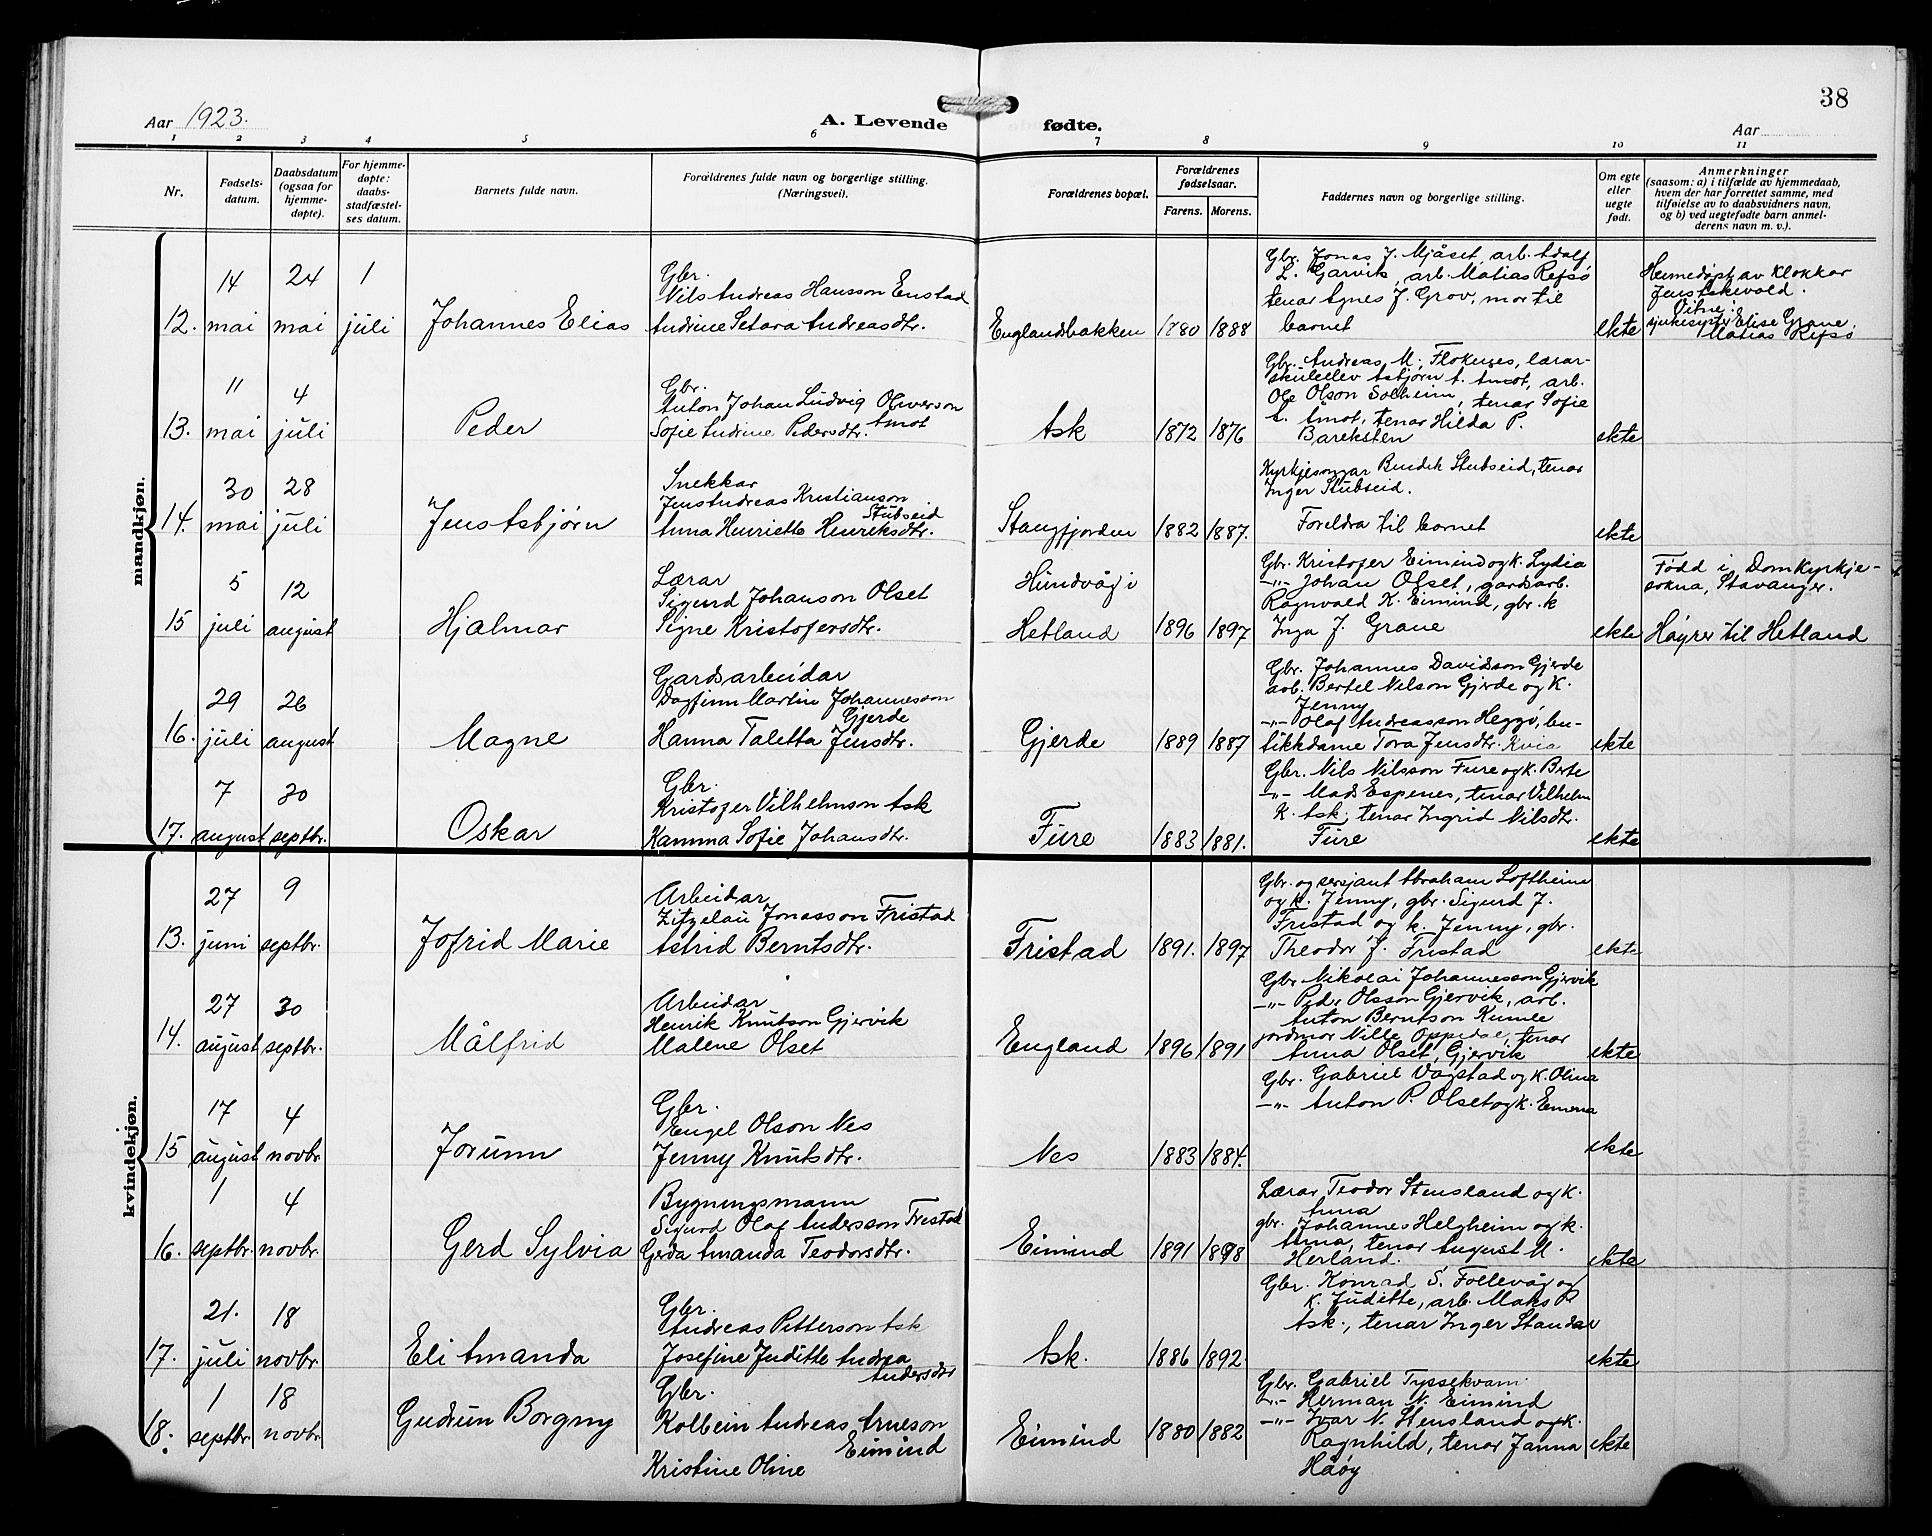 38
Aar 1923.
A. Levende fødte.
Aar
1 2 3 4 5 6 7 8 9 10 11
Nr.
Fødsels-
datum.
Daabsdatum
(ogsaa for
hjemme-
døpte).
For hjemme-
døpte:
daabs-
stadfæstel-
ses datum.
Barnets fulde navn.
Forældrenes fulde navn og borgerlige stilling.
(Næringsvei).
Forældrenes bopæl.
Forældrenes
fødselsaar.
Farens. Morens.
Faddernes navn og borgerlige stilling.
Om egte
eller
uegte
født.
Anmerkninger
(saasom: a) i tilfælde av hjemmedaab,
hvem der har forrettet samme, med
tilføielse av to daabsvidners navn,
og b) ved uegtefødte barn anmel-
derens navn m. v.).
mandkjøn.
12.
14
mai
24
mai
1
juli
Johannes Elias
Gbr.
Nils Andreas Hansson Enstad
Andrine Setora Andreasdtr.
Englandbakken
1880 1888
Gbr. Jonas J. Mjåset, arb. Adolf
L. Garvik, arb. Matias Refsø
tenar Agnes J. Grov, mor til
barnet
ekte
Heimedøpt av klokkar
Jens Askevold.
Vitne:
sjukesyster Elise Grane,
Matias Refsø
13.
11
mai
4
juli
Peder
Gbr.
Anton Johan Ludvig Oliverson
Åmot
Sofie Andrine Pedersdtr.
Ask
1872 1876
Gbr. Andreas M. Flokenes, lærar-
skuleelev Asbjørn A. Åmot, arb.
Ole Olson Solheim, tenar Sofie
A. Åmot, tenar Hilda P.
Bareksten
ekte
14.
30
mai
28
juli
Jens Asbjørn
Snekkar
Jens Andreas Kristianson
Stubseid
Anna Henriette Henriksdtr.
Stangfjorden
1882 1887.
Kyrkjesongar Bendik Stubseid, tenar
Inger Stubseid.
Foreldra til barnet
ekte
15
5
juli
12
august
Hjalmar
Lærar
Sigurd Johanson Olset
Signe Kristofersdtr.
Hundvåg i
Hetland
1896 1897
Gbr. Kristofer Eimind og k. Lydia
-"- Johan Olset, gardsarb.
Ragnvald K. Eimind, gbr. k
Inga J. Grane
ekte
Född i Domkyrkje-
sokna, Stavanger.
Høyrer til Hetland
16.
29
juli
26
august
Magne
Gardsarbeidar
Dagfinn Martin Johannesson
Gjerde
Hanna Taletta Jensdtr.
Gjerde
1889 1887
Gbr. Johannes Davidson Gjerde
arb. Bertel Nilson Gjerde og k.
Jenny
-"- Olaf Andreasson Heggø, bu-
tikkdame Tora Jensdtr. Kvia
ekte
17.
7
august
30
septbr.
Oskar
Gbr.
Kristofer Vilhelmson Ask
Kamma Sofie Johansdtr.
Fure
1883 1881.
Gbr. Nils Nilsson Fure og k. Berte
-"- Mads Espenes, tenar Vilhelm
K. Ask, tenar Ingrid Nilsdtr.
Fure
ekte
kvindekjøn.
13.
27
juni
9
septbr.
Jofrid Marie
Arbeidar
Zitzelau Jonasson Fristad
Astrid Berntsdtr.
Fristad
1891. 1897
Gbr. og sersjant Abraham Loftheim
og k. Jenny, gbr. Sigurd J.
Fristad og k. Jenny, gbr.
Theodor J. Fristad
ekte
14.
27
august
30
septbr.
Målfrid
Arbeidar
Henrik Knutson Gjervik
Malene Olset
England
1896 1891
Gbr. Nikolai Johannesson Gjervik
-"- Peder Olsson Gjervik, arb.
Anton Berntson Kumle
jordmor Nille Oppedal, tenar
Anna Olset, Gjervik
ekte
15
17
august
4
novbr.
Jorunn
Gbr.
Engel Olson Nes
Jenny Knutsdtr.
Nes
1883 1884.
Gbr. Gabriel Vågstad og k. Olina
-"- Anton P. Olset og k. Emma
ekte
16.
1
septbr.
4
novbr.
Gerd Sylvia
Bygningsmann
Sigurd Olaf Andersson Fristad
Gerda Amanda Teodorsdtr.
Eimind
1891 1898
Lærar Teodor Stensland og k.
Anna
gbr. Johannes Helgheim og k.
Anna, tenar August M.
Herland.
ekte
17.
21.
juli
18
novbr.
Eli Amanda
Gbr.
Andreas Petterson Ask
Josefine Juditte Andrea
Andersdtr
Ask.
1886 1892
Gbr. Konrad S. Follevåg og
k. Juditte, arb. Maks P.
Ask., tenar Inger Standal
ekte
18.
1
septbr.
18
novbr.
Gudrun Borgny
Gbr.
Kolbein Andreas Arneson
Eimind
Kristine Oline
Eimind
1880 1882
Gbr. Gabriel Tyssekvam.
-"- Herman N. Eimind
-"- Ivar N. Stensland og k.
Ragnhild, tenar Janna
Håøy
ekte